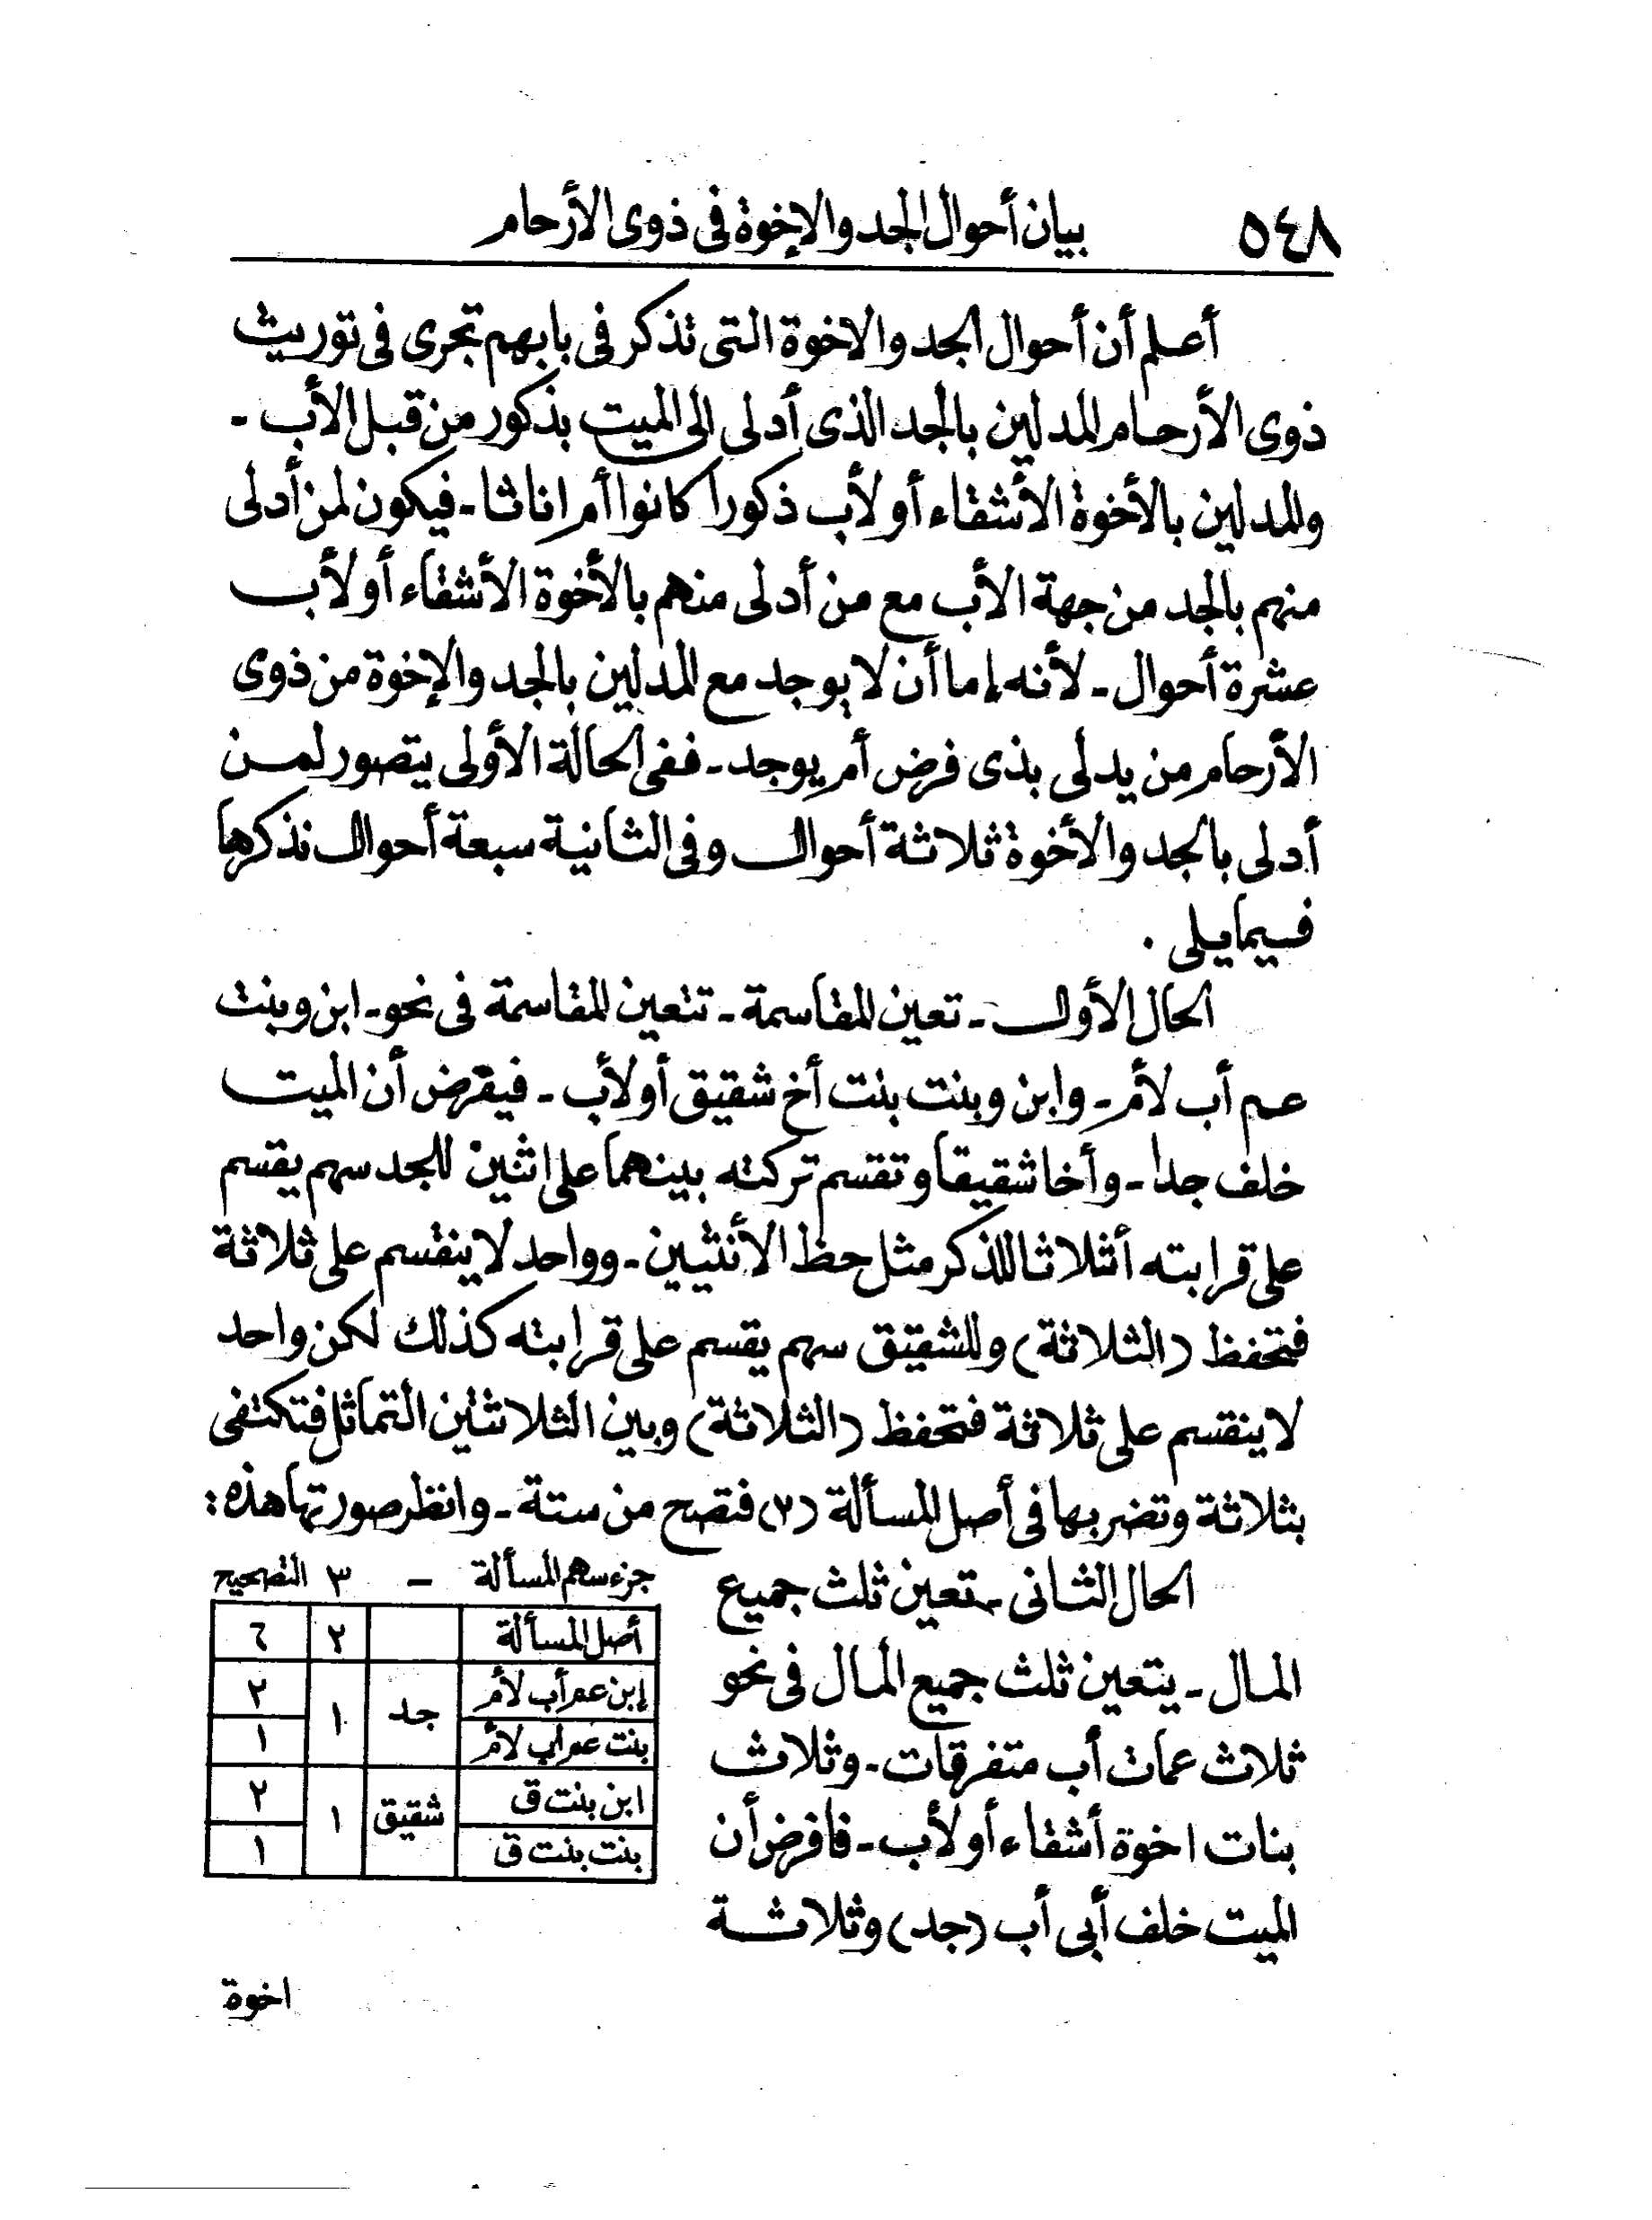 ٥٤٨ بيان أحوال الجد والإخوة فى ذوى الأرحام
أعلم أن أحوال الجد والاخوة التى تذكر فى بابهم تجرى فى توريث
ذوى الأرحام المدلين بالجد الذى أدلى الى الميت بذكور من قبل الأب -
والمدلين بالأخوة الأشقاء أو لأب ذكورا كانوا أم اناثا - فيكون لمن أدلى
منهم بالجد من جهة الأب مع من أدلى منهم بالأخوة الأشقاء أو لأب
عشرة أحوال - لأنه إما أن لا يوجد مع المدلين بالجد والإخوة من ذوى
الأرحام من يدلى بذى فرض أم يوجد - ففى الحالة الأولى يتصور لمن
أدلى بالجد والأخوة ثلاثة أحوال وفى الثانية سبعة أحوال نذكرها
فيما يلى .
الحال الأول - تعين المقاسمة - تتعين المقاسمة فى نحو - ابن وبنت
عم أب لأم - وابن وبنت بنت أخ شقيق أو لأب - فيفرض أن الميت
خلف جدا - وأخا شقيقا وتقسم تركته بينهما على اثنين للجد سهم يقسم
على قرابته أثلاثا للذكر مثل حظ الأنثيين - وواحد لا ينقسم على ثلاثة
فتحفظ (الثلاثة) وللشقيق سهم يقسم على قرابته كذلك لكن واحد
لا ينقسم على ثلاثة فتحفظ (الثلاثة) وبين الثلاثتين التماثل فتكتفى
بثلاثة وتضربها فى أصل المسألة (٢) فتصح من ستة - وانظر صورتها هذه :
الحال الثانى - تعين ثلث جميع
المال - يتعين ثلث جميع المال فى نحو
ثلاث عمات أب متفرقات - وثلاث
بنات اخوة أشقاء أو لأب - فافرض أن
الميت خلف أبى أب (جد) وثلاثة
جزء سهم المسألة - ٣ التصحيح
أصل المسألة ٢ ٦
إبن عم أب لأم جد ١ ٢
بنت عم أب لأم ١
ابن بنت ق شقيق ١ ٢
بنت بنت ق ١
اخوة